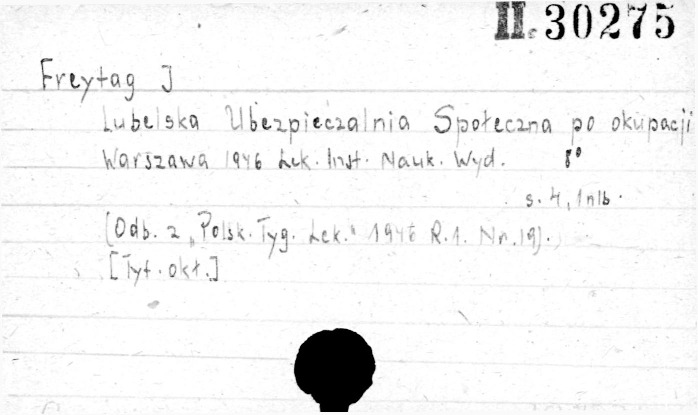 II. 30275
Freytag J
Lubelska Ubezpieczalnia Społeczna po okupacji
Warszawa 1946 Lek. Inst. Nauk. Wyd. 8°
s. 4, 1 nlb.
(Odb. z „Polsk. Tyg. Lek." 1946 R.1. Nr. 19).
[Tyt. okł.]